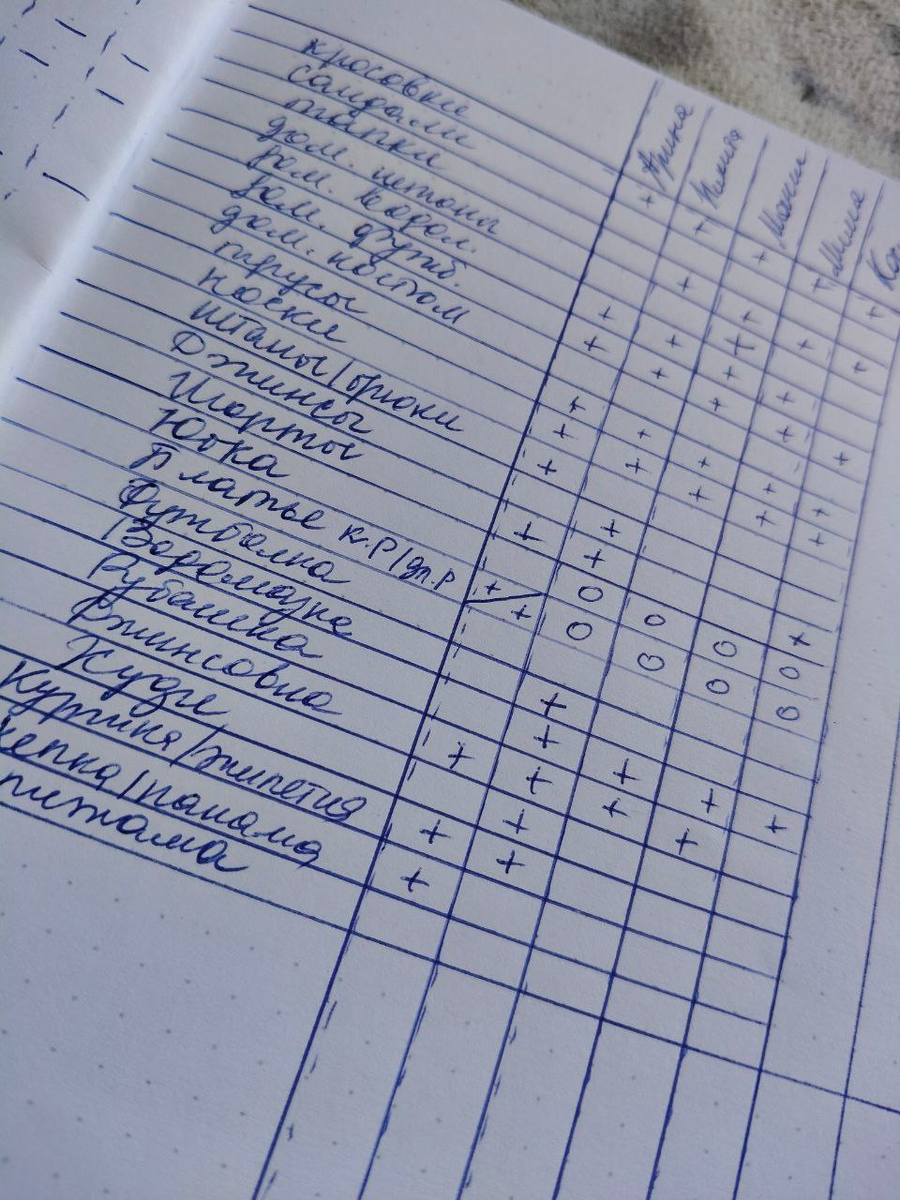 Арина
Мила
Ко
кросовки
сандали
тапки
дом. штаны
дом. водол.
дом. футб.
дом. костюм
трусы
носки
Штаны/брюки
Джинсы
Шорты
Юбка
Платье к.р/дл.р
Футболка
Водолазка
Рубашка
Джинсовка
Худи
Куртка/жилетка
кепка/панама
пижама